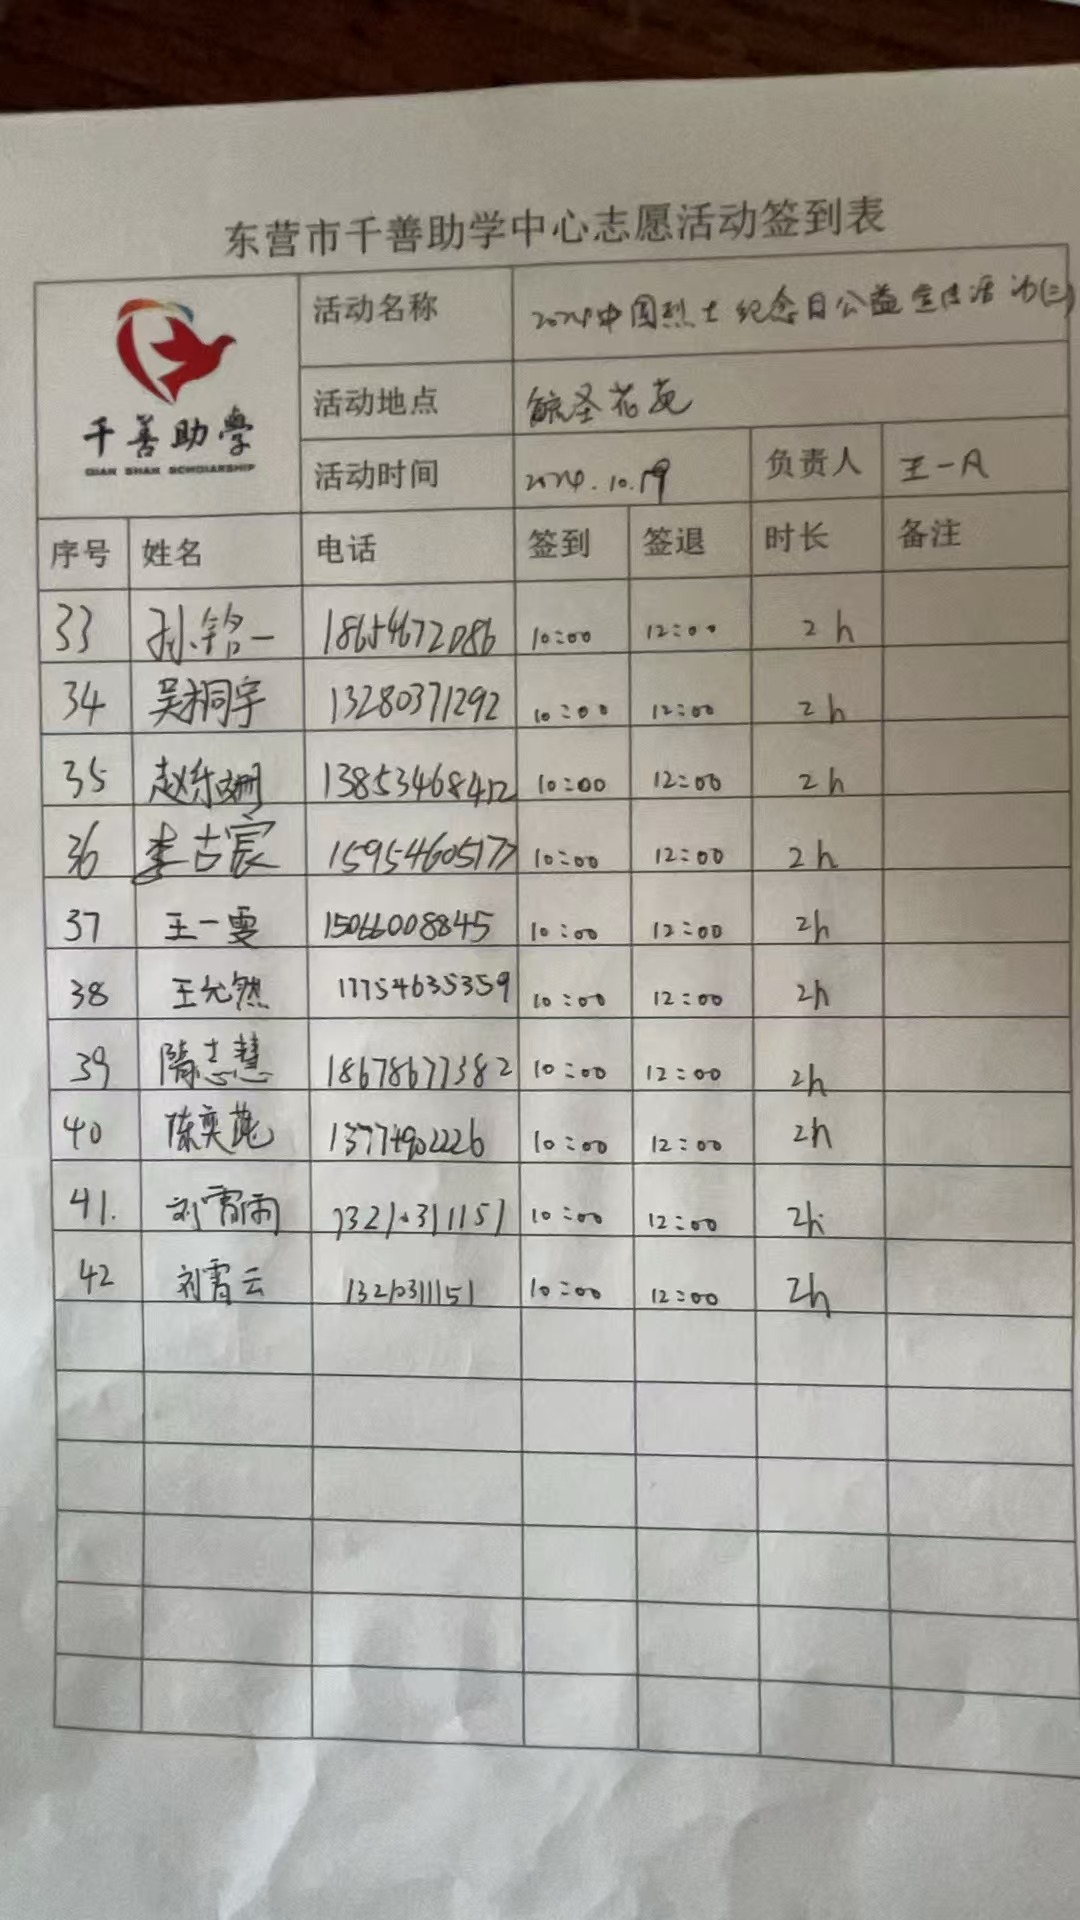 东营市千善助学中心志愿活动签到表
千善助學
QIAN SHAN SCHOLARSHIP
活动名称 2024中国烈士纪念日公益宣传活动(三)
活动地点 花苑
活动时间 2024.10.19 负责人 王一
序号 姓名 电话 签到 签退 时长 备注
33 孙铭一 18654672086 10:00 12:00 2h
34 吴桐宇 13280371292 10:00 12:00 2h
35 赵 13853468412 10:00 12:00 2h
36 李古宸 15954605177 10:00 12:00 2h
37 王一雯 15066008845 10:00 12:00 2h
38 王允然 17754635359 10:00 12:00 2h
39 隋志慧 18678677382 10:00 12:00 2h
40 陈奕 13774902226 10:00 12:00 2h
41. 刘霄雨 13210311151 10:00 12:00 2h
42 刘霄云 13210311151 10:00 12:00 2h